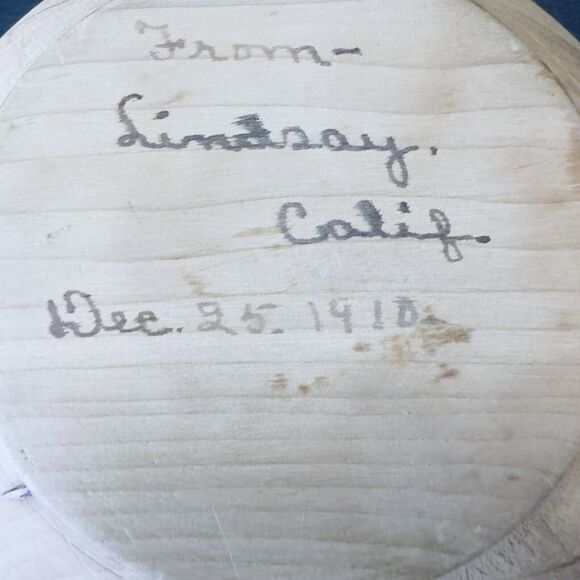 From-
Lindsay,
Calif.
Dec. 25. 1910.